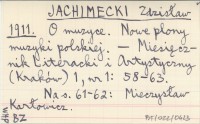 JACHIMECKI Zdzisław
1911. O muzyce. Nowe plony
muzyki polskiej. — Miesięcz-
nik Literacki i Artystyczny
(Kraków) 1, nr 1: 58-63.
Na s. 61-62: Mieczysław
Karłowicz.
BZ